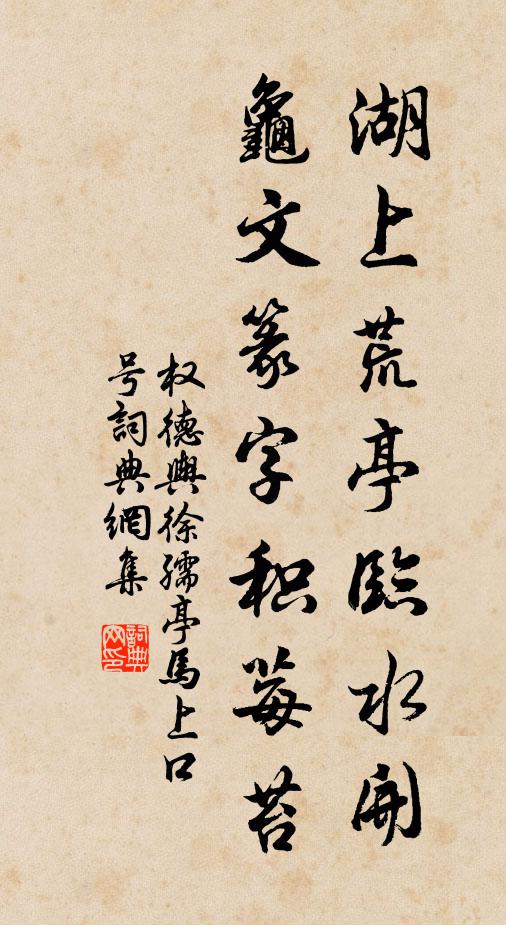 湖上荒亭臨水開
龜文篆字积莓苔
权德輿徐孺亭馬上口
号詞典網集
詞典網印